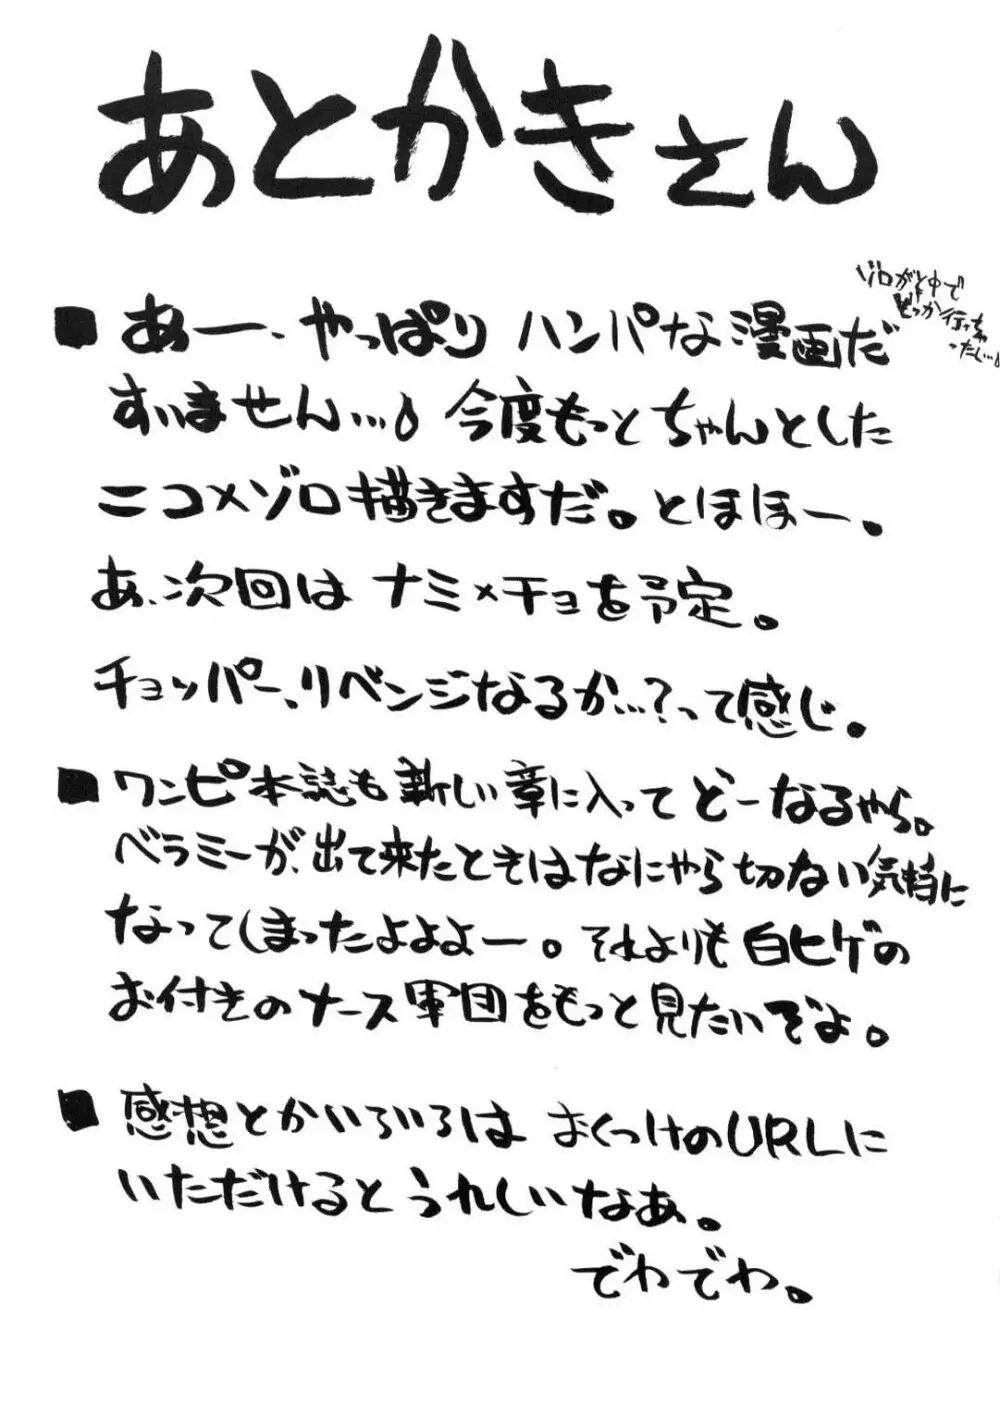 あとかきさん
■ あー、やっぱり ハンパな漫画だ
ゾロが途中で
どっか行っちゃ
ったし…
すいません…。今度もっとちゃんとした
ニコ×ゾロ描きますだ。とほほー。
あ、次回は ナミ×チョを予定。
チョッパー、リベンジなるか…?って感じ。
■ ワンピ本誌も新しい章に入って どーなるやら。
ベラミーが、出て来たときはなにやら切ない気持に
なってしまったよよよー。それよりも白ヒゲの
お付きのナース軍団をもっと見たいぞよ。
■ 感想とかいろいろは おくづけのURLに
いただけるとうれしいなあ。
でわでわ。